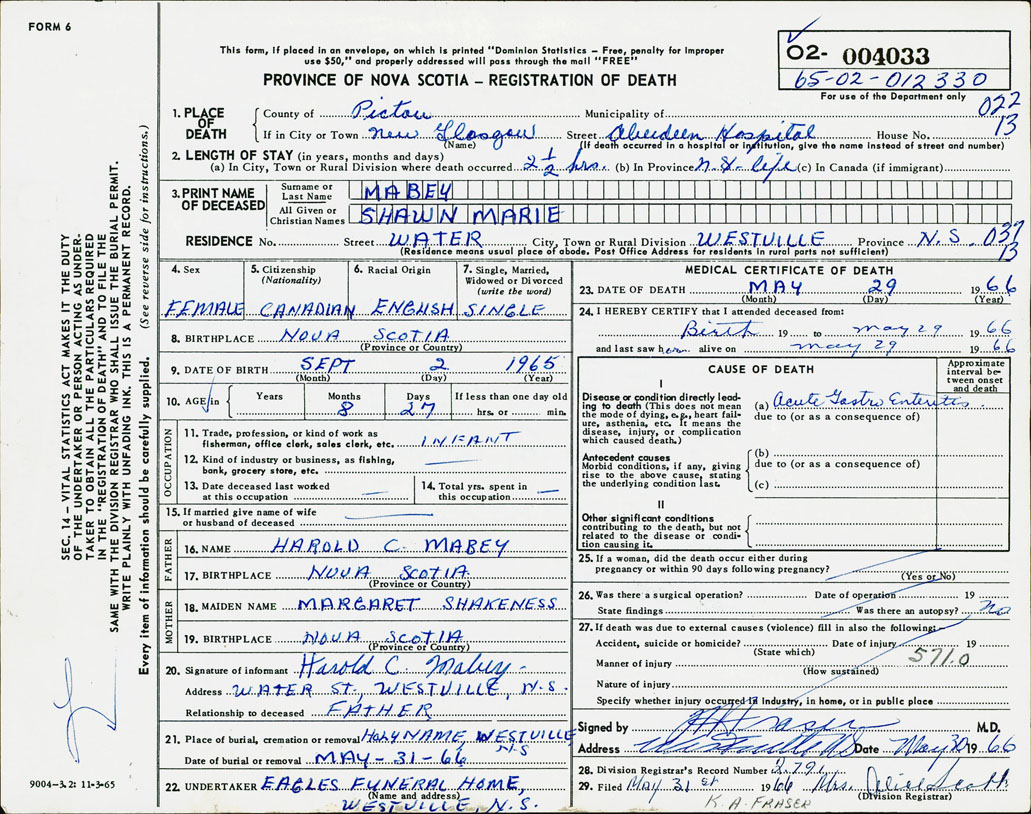 FORM 6
This form, if placed in an envelope, on which is printed "Dominion Statistics – Free, penalty for improper
use $50," and properly addressed will pass through the mail "FREE"
PROVINCE OF NOVA SCOTIA – REGISTRATION OF DEATH
02- 004033
65-02-012330
For use of the Department only
022
13
1. PLACE OF DEATH
County of Pictou Municipality of
If in City or Town New Glasgow Street Aberdeen Hospital House No.
(Name) (If death occurred in a hospital or institution, give the name instead of street and number)
2. LENGTH OF STAY (in years, months and days)
(a) In City, Town or Rural Division where death occurred 2 1/2 hrs. (b) In Province N.S. life (c) In Canada (if immigrant)
3. PRINT NAME OF DECEASED
Surname or Last Name MABEY
All Given or Christian Names SHAWN MARIE
RESIDENCE No. Street WATER City, Town or Rural Division WESTVILLE Province N.S. 037
13
(Residence means usual place of abode. Post Office Address for residents in rural parts not sufficient)
4. Sex
FEMALE
5. Citizenship (Nationality)
CANADIAN
6. Racial Origin
ENGLISH
7. Single, Married, Widowed or Divorced (write the word)
SINGLE
8. BIRTHPLACE NOVA SCOTIA
(Province or Country)
9. DATE OF BIRTH SEPT 2 1965
(Month) (Day) (Year)
10. AGE in Years Months Days If less than one day old
8 27 hrs. or min.
OCCUPATION
11. Trade, profession, or kind of work as
fisherman, office clerk, sales clerk, etc. INFANT
12. Kind of industry or business, as fishing,
bank, grocery store, etc.
13. Date deceased last worked
at this occupation
14. Total yrs. spent in
this occupation
15. If married give name of wife
or husband of deceased
FATHER
16. NAME HAROLD C. MABEY
17. BIRTHPLACE NOVA SCOTIA
(Province or Country)
MOTHER
18. MAIDEN NAME MARGARET SHAKENESS
19. BIRTHPLACE NOVA SCOTIA
(Province or Country)
20. Signature of informant Harold C. Mabey
Address WATER ST., WESTVILLE, N.S.
Relationship to deceased FATHER
21. Place of burial, cremation or removal HOLY NAME, WESTVILLE
N.S
Date of burial or removal MAY-31-66
22. UNDERTAKER EAGLES FUNERAL HOME,
(Name and address)
WESTVILLE, N.S.
MEDICAL CERTIFICATE OF DEATH
23. DATE OF DEATH MAY 29 1966
(Month) (Day) (Year)
24. I HEREBY CERTIFY that I attended deceased from:
Birth 19 to may 29 1966
and last saw her alive on may 29 1966
CAUSE OF DEATH
Approximate interval between onset and death
I
Disease or condition directly leading to death (This does not mean the mode of dying, e.g., heart failure, asthenia, etc. It means the disease, injury, or complication which caused death.)
(a) Acute Gastro Enteretis
due to (or as a consequence of)
Antecedent causes
Morbid conditions, if any, giving rise to the above cause, stating the underlying condition last.
(b)
due to (or as a consequence of)
(c)
II
Other significant conditions
contributing to the death, but not related to the disease or condition causing it.
25. If a woman, did the death occur either during
pregnancy or within 90 days following pregnancy?
(Yes or No)
26. Was there a surgical operation? Date of operation 19
State findings Was there an autopsy? no
27. If death was due to external causes (violence) fill in also the following:
Accident, suicide or homicide? Date of injury 19
(State which) 571.0
Manner of injury
(How sustained)
Nature of injury
Specify whether injury occurred in industry, in home, or in public place
Signed by H Fraser M.D.
Address Westville NS Date May 30 1966
28. Division Registrar's Record Number 2791
29. Filed May 31st 1966 Mrs. Scott
(Division Registrar)
K. A. FRASER
SEC. 14 – VITAL STATISTICS ACT MAKES IT THE DUTY
OF THE UNDERTAKER OR PERSON ACTING AS UNDER-
TAKER TO OBTAIN ALL THE PARTICULARS REQUIRED
IN THE "REGISTRATION OF DEATH" AND TO FILE THE
SAME WITH THE DIVISION REGISTRAR WHO SHALL ISSUE THE BURIAL PERMIT.
WRITE PLAINLY WITH UNFADING INK. THIS IS A PERMANENT RECORD.
Every item of information should be carefully supplied. (See reverse side for instructions.)
9004-3.2: 11-3-65